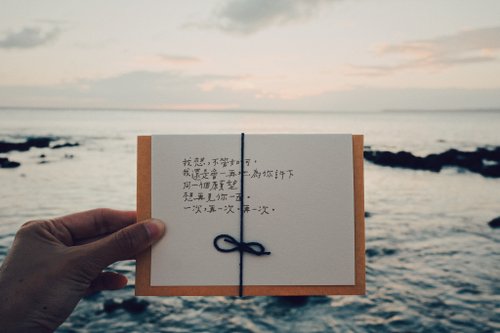 我想，不管如何。
我還是會一再地為你許下
同一個願望
想再見你一面。
一次，再一次，再一次。